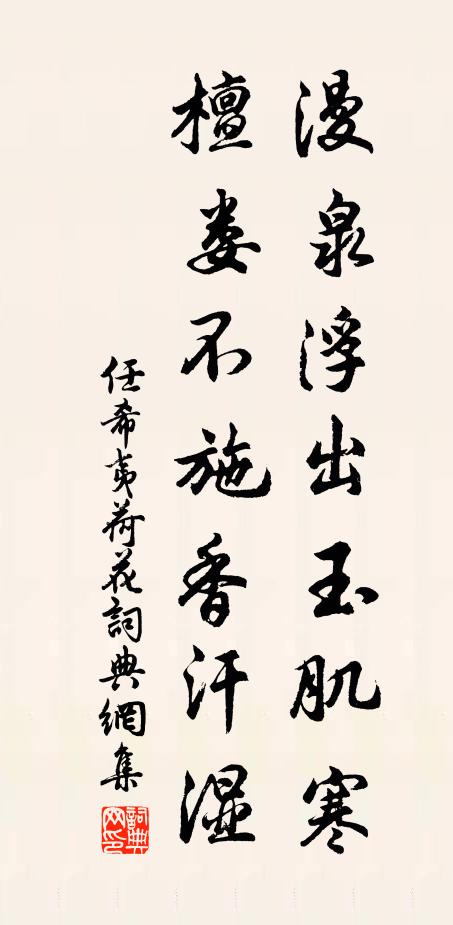 漫泉浮出玉肌寒
檀娄不施香汗湿
任希夷荷花詞典網集
詞典
网印